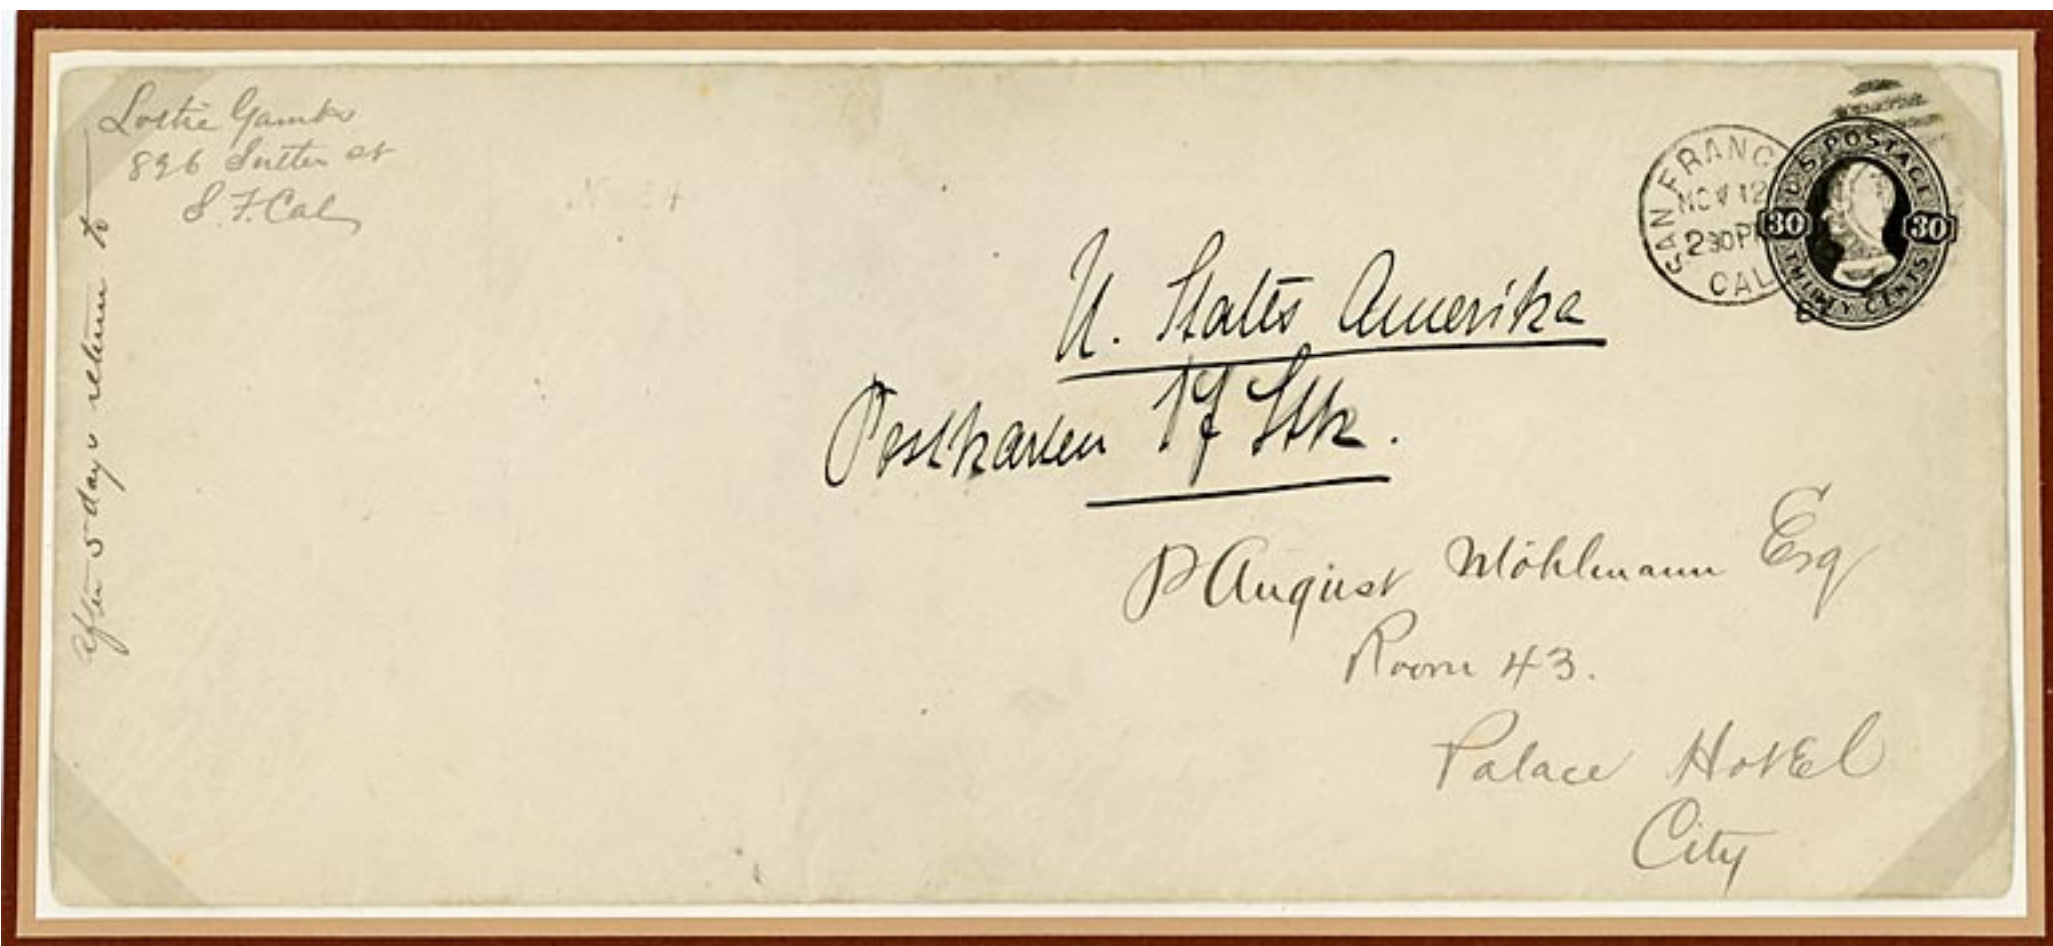 After 5 days return to
826 Sutter st
S. F. Cal
SAN FRANC
NOV 12
230P
CAL
U.S. POSTAGE
30 30
THIRTY CENTS
U. States Amerika
Postkarten
P August Möhlmann Esq
Room 43.
Palace Hotel
City